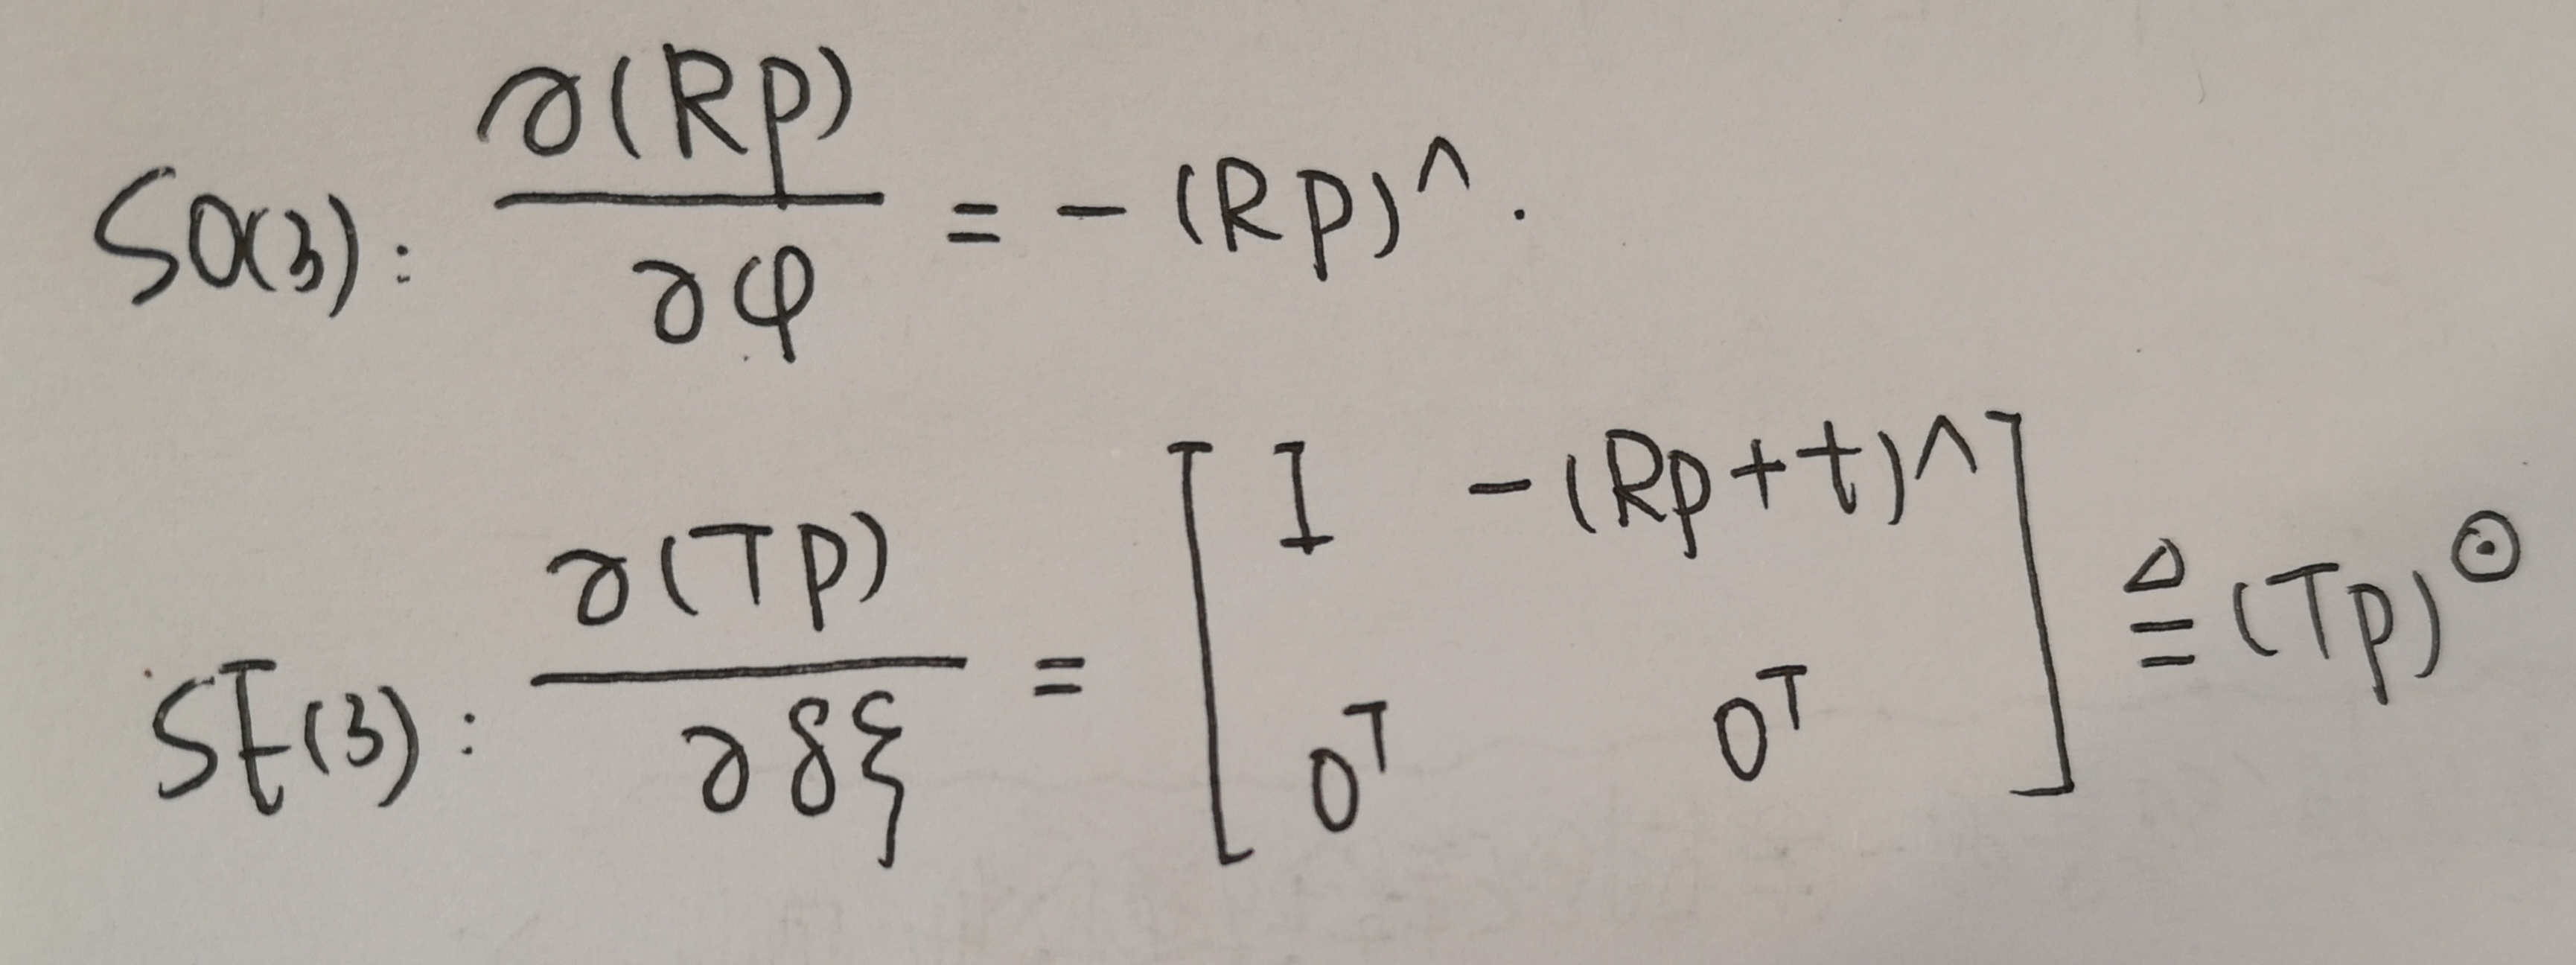 SO(3): ∂(Rp)/∂φ = -(Rp)^.
SE(3): ∂(Tp)/∂δξ = [I -(Rp+t)^; 0^T 0^T] ≜ (Tp)^⊙